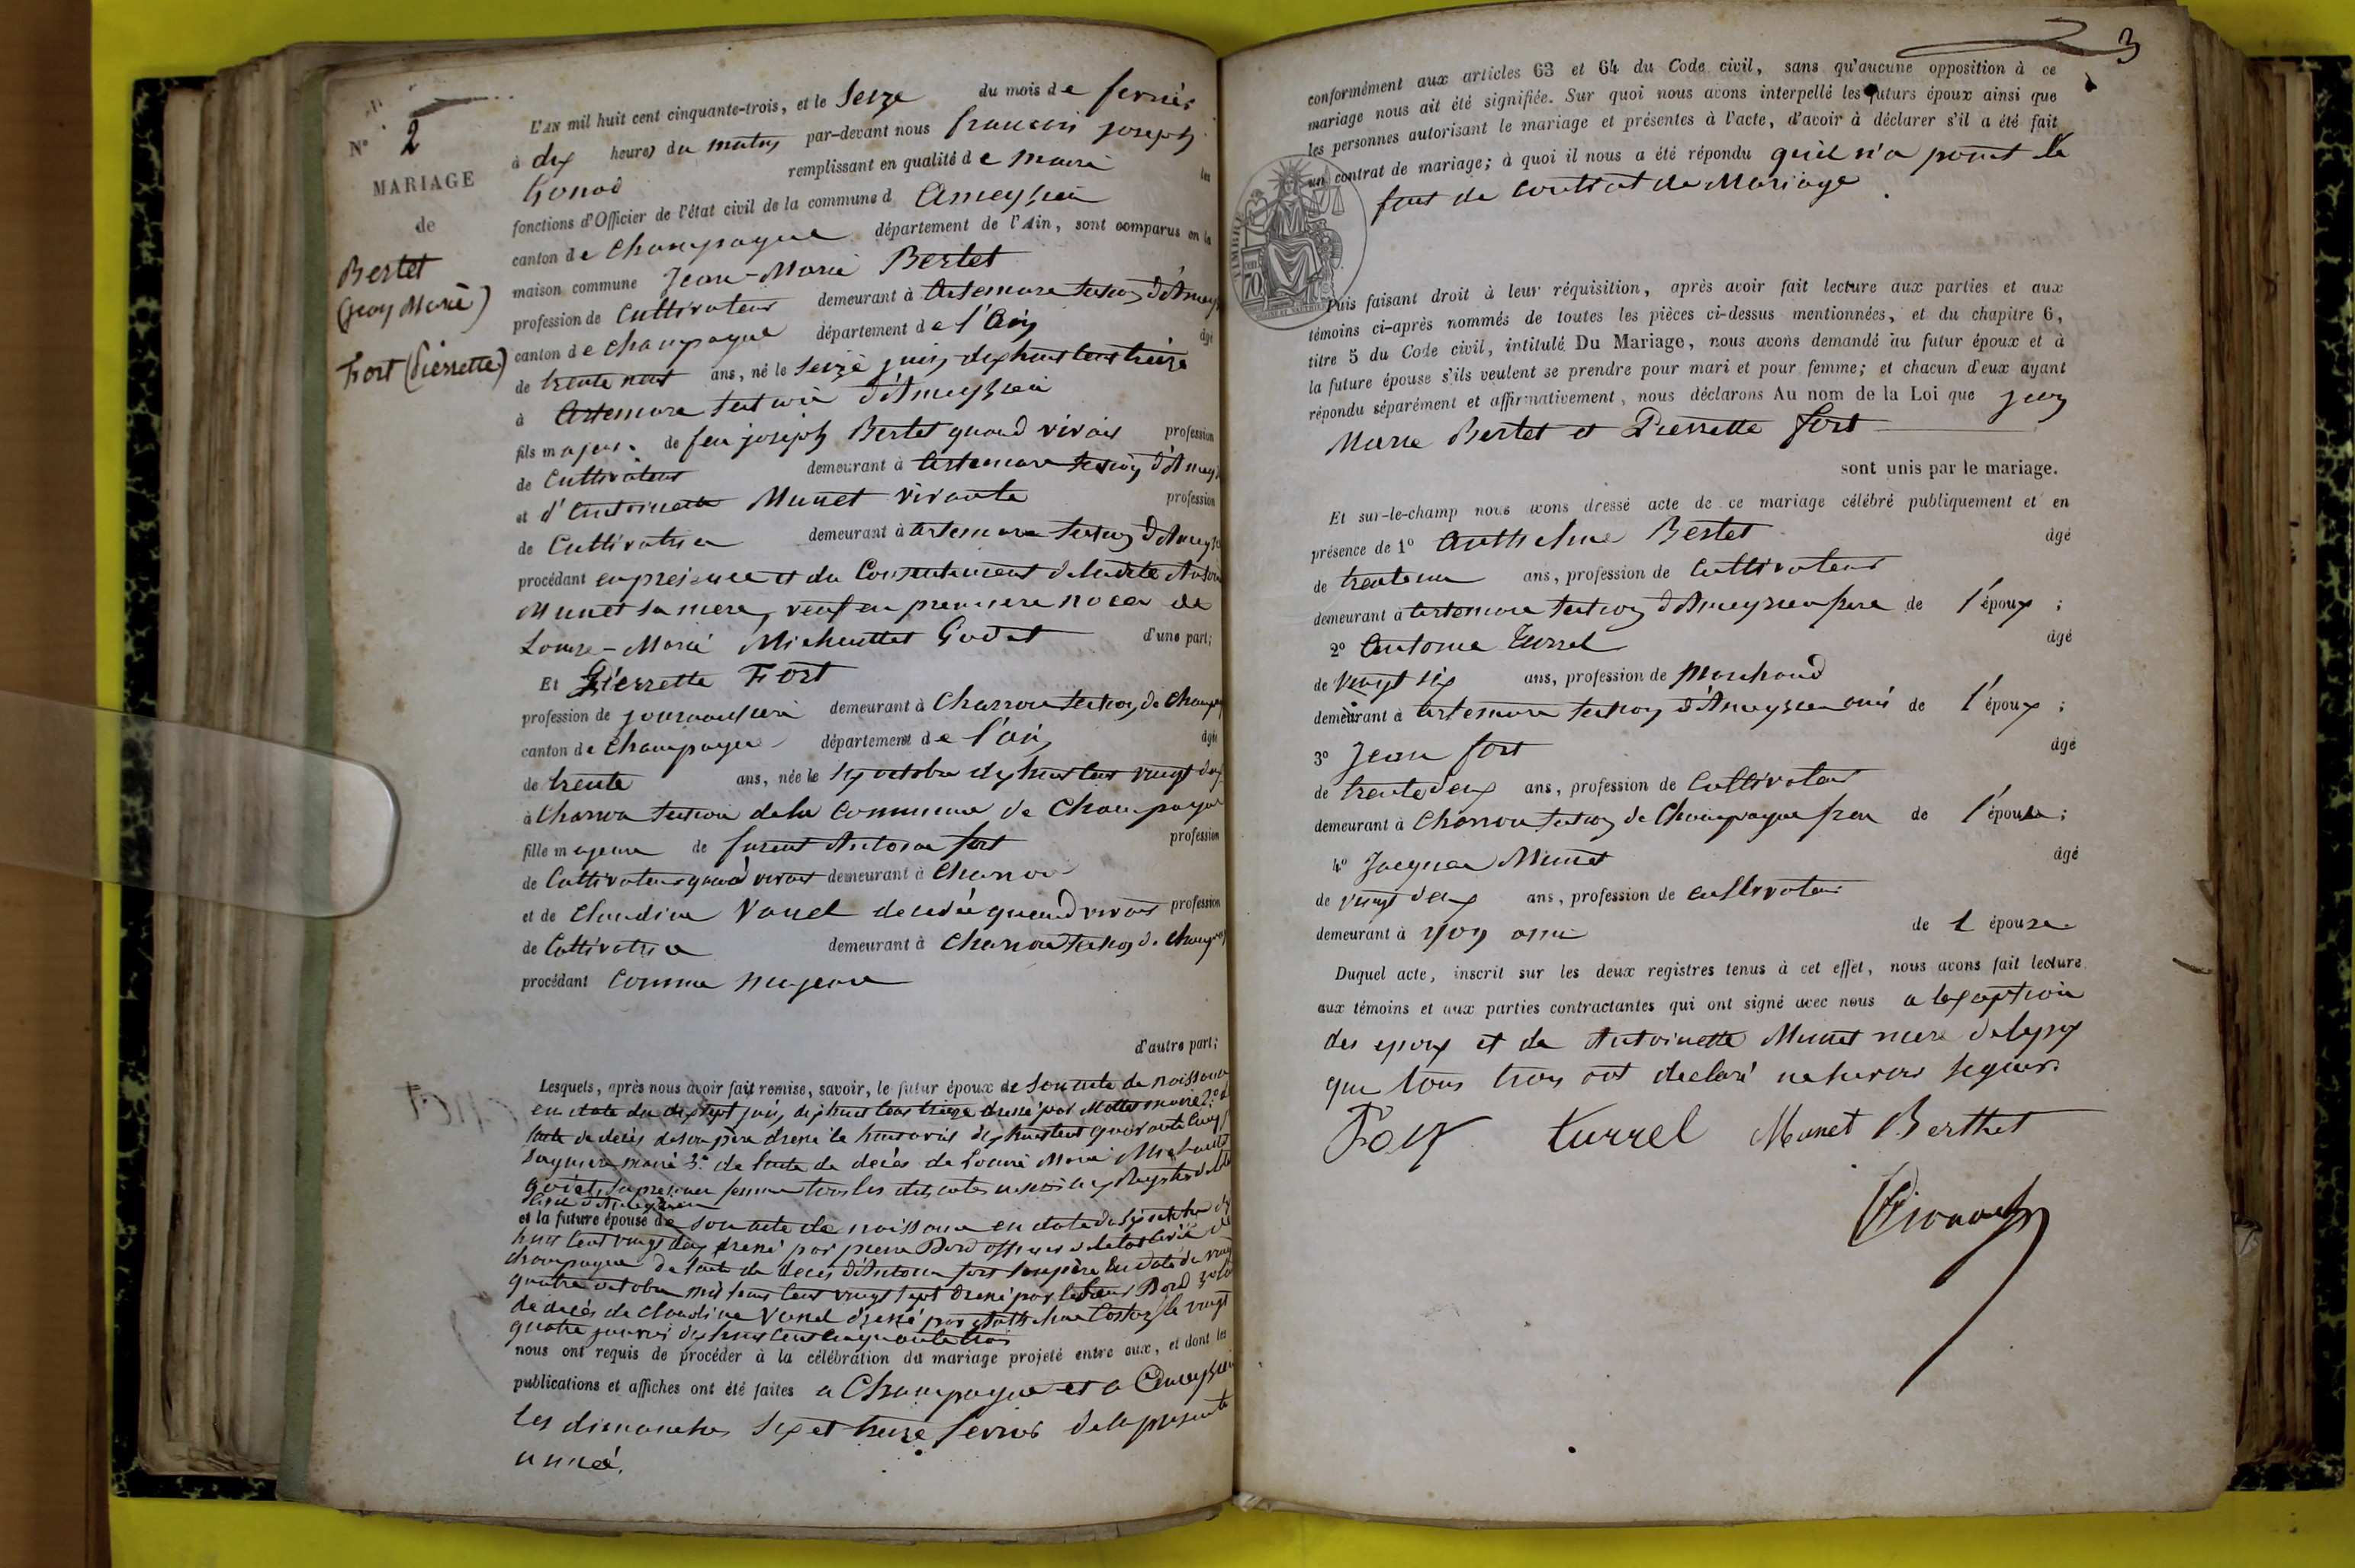 N° 2
MARIAGE
de
Bertet
(jean Marie)
Fort (Pierrette)
L'AN mil huit cent cinquante-trois, et le Seize du mois de fevrier
à dix heures du matin par-devant nous francois joseph
Gonod remplissant en qualité de maire les
fonctions d'Officier de l'état civil de la commune d Ameyzieu
canton de Champagne département de l'Ain, sont comparus en la
maison commune Jean-Marie Bertet
profession de Cultivateur demeurant à Artemare section d'Amey
canton de Champagne département de l'Ain âgé
de trente neuf ans, né le Seize juin dix huit cent treize
à Artemare section d'Ameyzieu
fils majeur de feu joseph Bertet quand vivait profession
de Cultivateur demeurant à Artemare section d'Amey
et d'Antoinette Munet vivante profession
de Cultivatrice demeurant à Artemare section d'Ameyz
procédant en presence et du Consentement de ladite Antoi
Munet sa mere, veuf en premiere noces de
Louise-Marie Michuellet Godet d'une part;
Et Pierrette Fort
profession de journaliere demeurant à Charron section de Champ
canton de Champagne département de l'ain âgée
de trente ans, née le six octobre dix huit cent vingt deux
à Charron section de la Commune de Champagne
fille majeure de furent Antoine fort profession
de Cultivateur quand vivait demeurant à Charron
et de Claudine Vanel decedée quand vivait profession
de Cultivatrice demeurant à Charron section de Champ
procédant Comme majeure
d'autre part;
Lesquels, après nous avoir fait remise, savoir, le futur époux de son acte de naissance
en date du dix sept juin dix huit cent treize dressé par Mollet maire 2°
acte de décès de son père dressé le huit avril dix huit cent quarante cinq
maire 3° de l'acte de decès de Louise Marie Michuellet
sa premiere femme tous les dits actes Registres
d'Ameyzieu
et la future épouse de son acte de naissance en date du six octobre dix
huit cent vingt deux dressé par pierre Bord officier de l'etat civil de
champagne de l'acte de deces d'Antoine fort son père en date du vingt
quatre octobre mil huit cent vingt sept dressé par ledit Bord 3°
de decès de Claudine Vanel dressé par Anthelme Costaz le vingt
quatre janvier dix huit cent cinquante trois
nous ont requis de procéder à la célébration du mariage projeté entre eux, et dont les
publications et affiches ont été faites a Champagne et a Ameyzieu
les dimanches Six et treize fevrier de la presente
année.
3
conformément aux articles 63 et 64 du Code civil, sans qu'aucune opposition à ce
mariage nous ait été signifiée. Sur quoi nous avons interpellé les futurs époux ainsi que
les personnes autorisant le mariage et présentes à l'acte, d'avoir à déclarer s'il a été fait
un contrat de mariage; à quoi il nous a été répondu qu'il n'a point été
fait de contrat de Mariage.
TIMBRE
70
Puis faisant droit à leur réquisition, après avoir fait lecture aux parties et aux
témoins ci-après nommés de toutes les pièces ci-dessus mentionnées, et du chapitre 6,
titre 5 du Code civil, intitulé Du Mariage, nous avons demandé au futur époux et à
la future épouse s'ils veulent se prendre pour mari et pour femme; et chacun d'eux ayant
répondu séparément et affirmativement, nous déclarons Au nom de la Loi que jean
Marie Bertet et Pierrette fort
sont unis par le mariage.
Et sur-le-champ nous avons dressé acte de ce mariage célébré publiquement et en
présence de 1° Anthelme Bertet âgé
de trente un ans, profession de Cultivateur
demeurant à Artemare section d'Ameyzieu frere de l'époux;
2° Antoine Turrel âgé
de vingt six ans, profession de Marchand
demeurant à Artemare section d'Ameyzieu ami de l'époux;
3° Jean fort âgé
de trente deux ans, profession de Cultivateur
demeurant à Charron section de Champagne frere de l'épouse;
4° Jacques Munet âgé
de vingt deux ans, profession de cultivateur
demeurant à Yon ami de l épouse
Duquel acte, inscrit sur les deux registres tenus à cet effet, nous avons fait lecture
aux témoins et aux parties contractantes qui ont signé avec nous a lexception
des epoux et de Antoinette Munet mere de lepoux
que tous trois ont declaré ne savoir signer.
Fort Turrel Munet Berthet